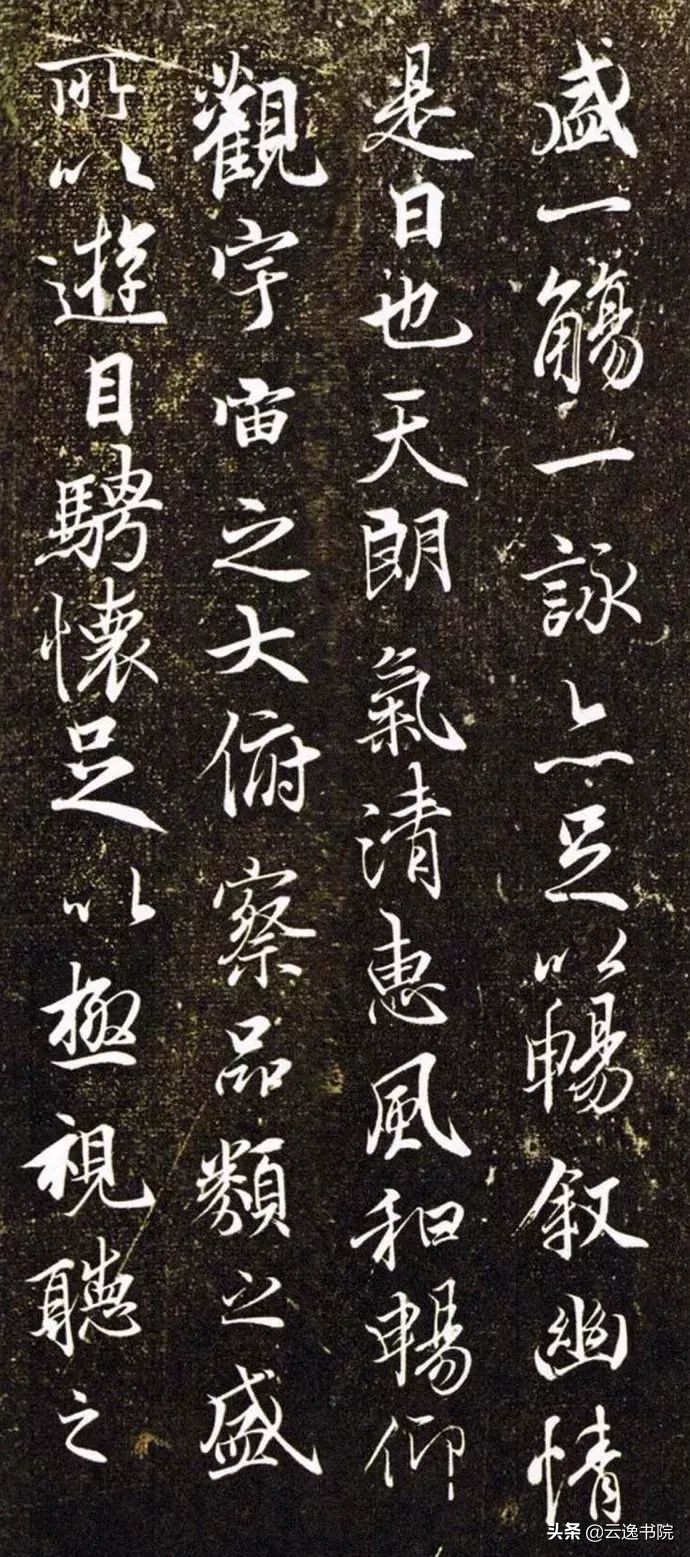 盛一觴一詠亦足以暢叙幽情
是日也天朗氣清惠風和暢仰
觀宇宙之大俯察品類之盛
所以遊目騁懷足以極視聽之
头条 @云逸书院